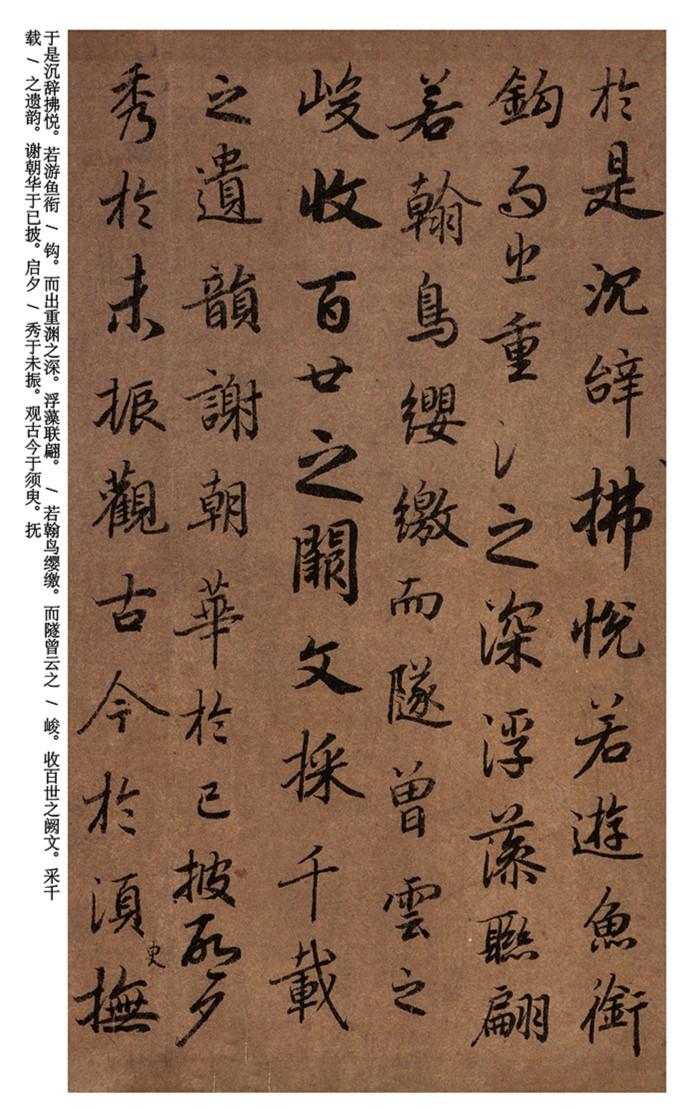 於是沉辭拂悅若遊魚銜
鈎而出重氵之深浮藻聯翩
若翰鳥纓繳而隧曾雲之
峻收百廿之闕文採千載
之遺韻謝朝華於已披啓夕
秀於未振觀古今於須臾撫
于是沉辞拂悦。若游鱼衔 / 钩。而出重渊之深。浮藻联翩。 / 若翰鸟缨缴。而隧曾云之 / 峻。收百世之阙文。采千
载 / 之遗韵。谢朝华于已披。启夕 / 秀于未振。观古今于须臾。抚